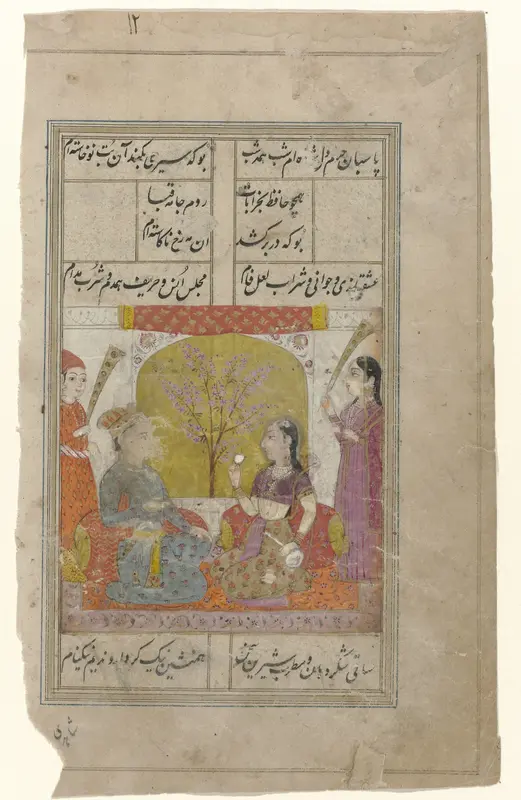 ۱۲
پاسبان حرم دل شده ام شب همه شب بو که سیری بکند آن بت نوخاسته ام
همچو حافظ بخرابات روم جامه قبا
بو که در بر کشد ان مه رخ ناکاسته ام
عشقبازی و جوانی و شراب لعل فام مجلس انس و حریف همدم و شرب مدام
ساقی شکر دهان و مطرب شیرین سخن همنشین نیک کردار و ندیم نیکنام
شاهدی